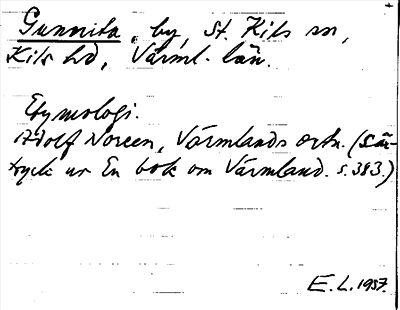 Gunnita, by, St. Kils sn,
Kils hd, Värml. län.
Etymologi.
Adolf Noreen, Värmlands ortn. (sär-
tryck ur En bok om Värmland. s. 383.)
E. L. 1937.